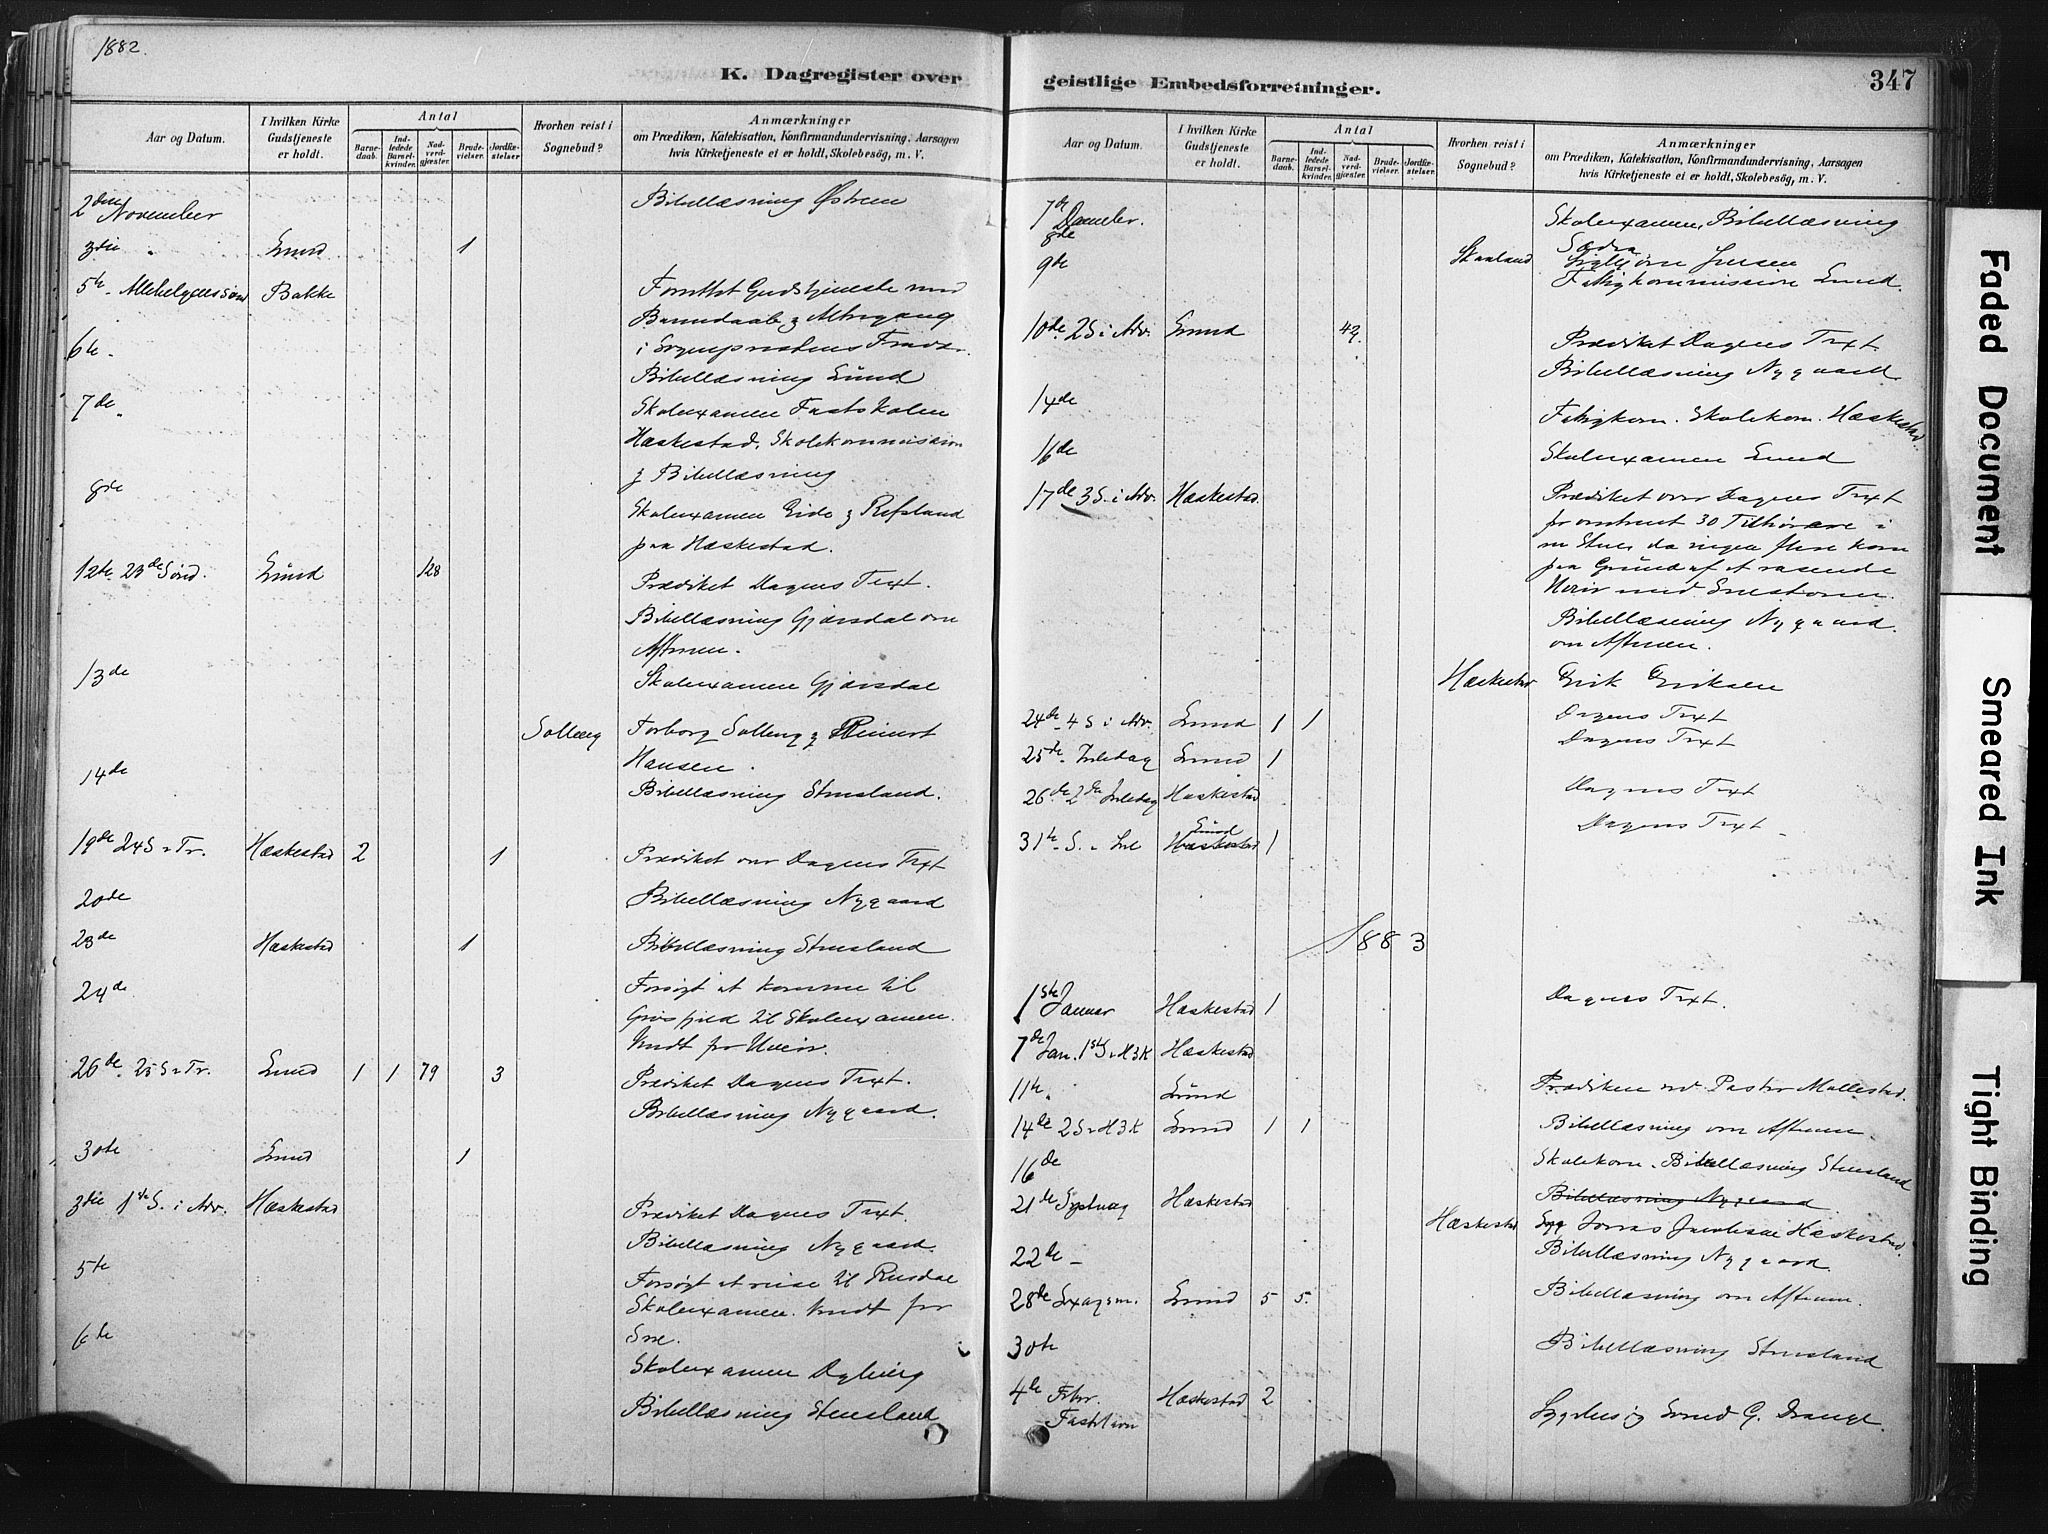 1882.
K. Dagregister over
Aar og Datum.
I hvilken Kirke Gudstjeneste er holdt.
Antal
Barnedaab.
Indledede Barselkvinder.
Nadverdgjæster.
Brudevielser.
Jordfæstelser
Hvorhen reist i Sognebud?
Anmærkninger
om Prædiken, Katekisation, Konfirmandundervisning, Aarsagen
hvis Kirketjeneste ei er holdt, Skolebesög, m. V.
2den November Bibellæsning Østrem
3die " Lund 1
5te Allehelgenssønd Bakke Forrettet Gudstjeneste med
Barnedaab & Altergang
i Sogneprestens Fravær.
6te Bibellæsning Lund
7de Skoleexamen Fastskolen
Hæskestad, Skolekommission
& Bibellæsning
8de Skoleexamen Eide & Refsland
paa Hæskestad.
12te 23de Sønd. Lund 128 Prædiket Dagens Text.
Bibellæsning Gjærsdal om
Aftenen.
13de Skoleexamen Gjærsdal
Solberg Torborg Solberg & Reinert
Hansen.
14de Bibellæsning Stensland.
19de 24 S e Tr. Hæskestad 2 1 Prædiket over Dagens Text
20de Bibellæsning Nygaard
23de Hæskestad 1 Bibellæsning Stensland
24de Forsøgt at komme til
til Skoleexamen.
Vendt for Uveir.
26de 25 S e Tr. Lund 1 1 79 3 Prædiket Dagens Text.
Bibellæsning Nygaard.
30te Lund 1
3die 1ste S. i Adv. Hæskestad Prædiket Dagens Text.
Bibellæsning Nygaard.
5te Forsøgt at reise til Rusdal
Skoleexamen. Vendt for
Sne.
6te Skoleexamen Dybing
Bibellæsning Stensland
geistlige Embedsforretninger.
347
Aar og Datum.
I hvilken Kirke Gudstjeneste er holdt.
Antal
Barnedaab.
Indledede Barselkvinder.
Nadverdgjæster.
Brudevielser.
Jordfæstelser
Hvorhen reist i Sognebud?
Anmærkninger
om Prædiken, Katekisation, Konfirmandundervisning, Aarsagen
hvis Kirketjeneste ei er holdt, Skolebesög, m. V.
7de December. Skoleexamen, Bibellæsning
8de
Skaaland Jensen
9de Fattigkommission Lund.
10de 2 S i Adv. Lund 42. Prædiket Dagens Text.
Bibellæsning Nygaard
14de Fattigkom. Skolekom. Hæskestad
16de Skoleexamen Lund
17de 3 S. i Adv. Hæskestad Prædiket over Dagens Text
for omtrent 30 Tilhørere i
en Stue, da ingen flere kom
paa Grund af et rasende
Uveir med Snestorm.
Bibellæsning Nygaard.
om Aftenen.
Hæskestad Erik Eriksen
24de 4 S i Adv. Lund 1 1 Dagens Text
25de Juledag Lund 1 Dagens Text
26de 2den Juledag Hæskestad Dagens Text
Lund
31te S. e Jul Hæskestad 1 Dagens Text
1883
1ste Januar Hæskestad 1 Dagens Text.
7de Jan. 1st S e H3K Hæskestad
11te " Lund Prædiken ved Pastor Mollestad.
14de 2 S e H3K Lund 1 1 Bibellæsning om Aftenen.
16de Skolekom. Bibellæsning Stensland
21de Hæskestad Bibellæsning Nygaard
Hæskestad Jonas Jacobsen Hæskestad.
22de Bibellæsning Nygaard.
28de Sexagsm. Lund 5 5 Bibellæsning om Aftenen.
30te Bibellæsning Stensland
4de Febr. Hæskestad 2 Sygebesøg Svend G. Drange.
Fastelavn
Faded Document
Smeared Ink
Tight Binding